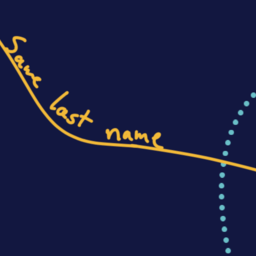 Same last name